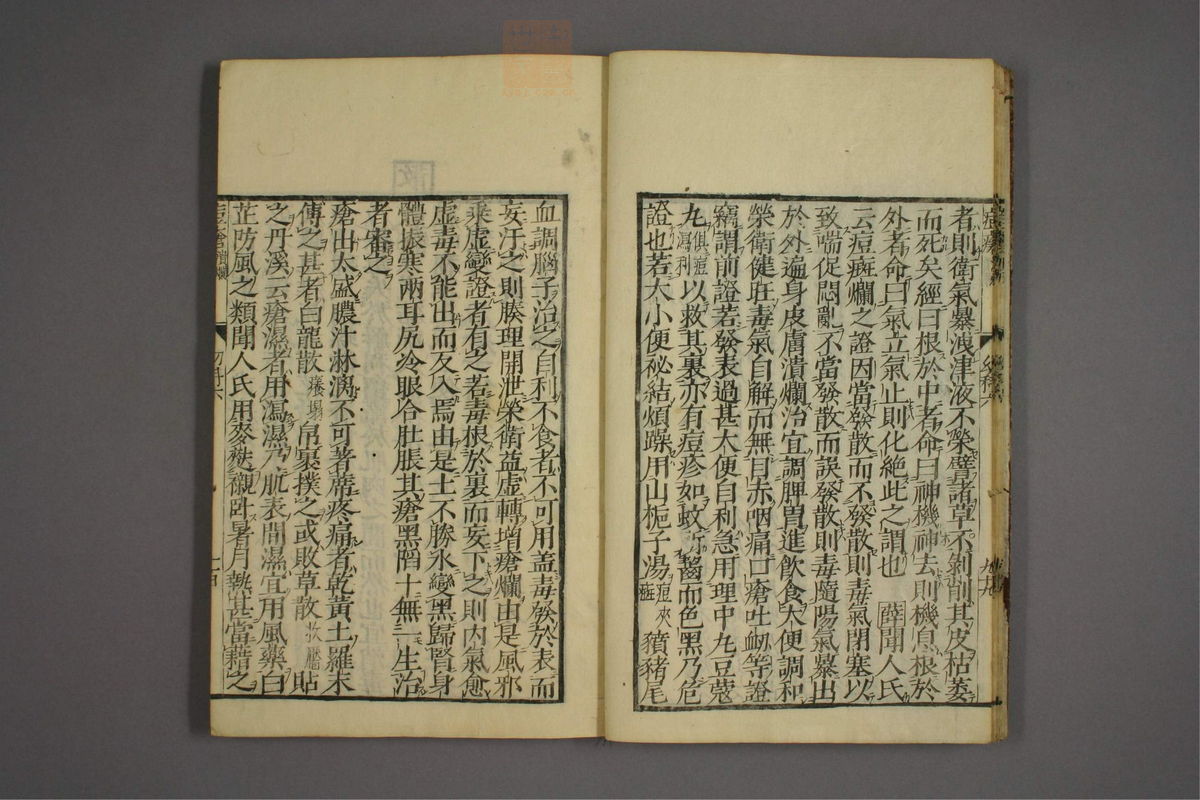 者則衛氣暴洩津液不榮譬諸草不剝削其皮枯萎
而死矣經曰根於中者命曰神機神去則機息根於
外者命曰氣立氣止則化絕此之謂也 薛聞人氏
云痘癍爛之證因當發散而不發散則毒氣閉塞以
致喘促悶亂不當發散而誤發散則毒隨陽氣暴出
於外遍身皮膚潰爛治宜調脾胃進飲食大便調和
榮衛健旺毒氣自解而無目赤咽痛口瘡吐衄等證
竊謂前證若發表過甚大便自利急用理中丸豆蔻
丸俱痘瀉利以救其裏亦有痘疹如蚊所齧而色黑乃危
證也若大小便祕結煩躁用山梔子湯痘夾癍豶豬尾
血調腦子治之自利不食者不可用盖毒發於表而
妄汗之則腠理開泄榮衛益虛轉增瘡爛由是風邪
乘虛變證者有之若毒根於裏而妄下之則內氣愈
虛毒不能出而反入焉由是土不勝水變黑歸腎身
體振寒兩耳尻冷眼合肚脹其瘡黑陷十無一生治
者審之
瘡出太盛膿汁淋漓不可著蓆疼痛者乾黃土羅末
傅之甚者白龍散癢塌帛裹撲之或敗草散 貼
之丹溪云瘡濕者用瀉濕乃肌表間濕宜用風藥白
芷防風之類聞人氏用麥麩襯卧暑月熱甚當藉之